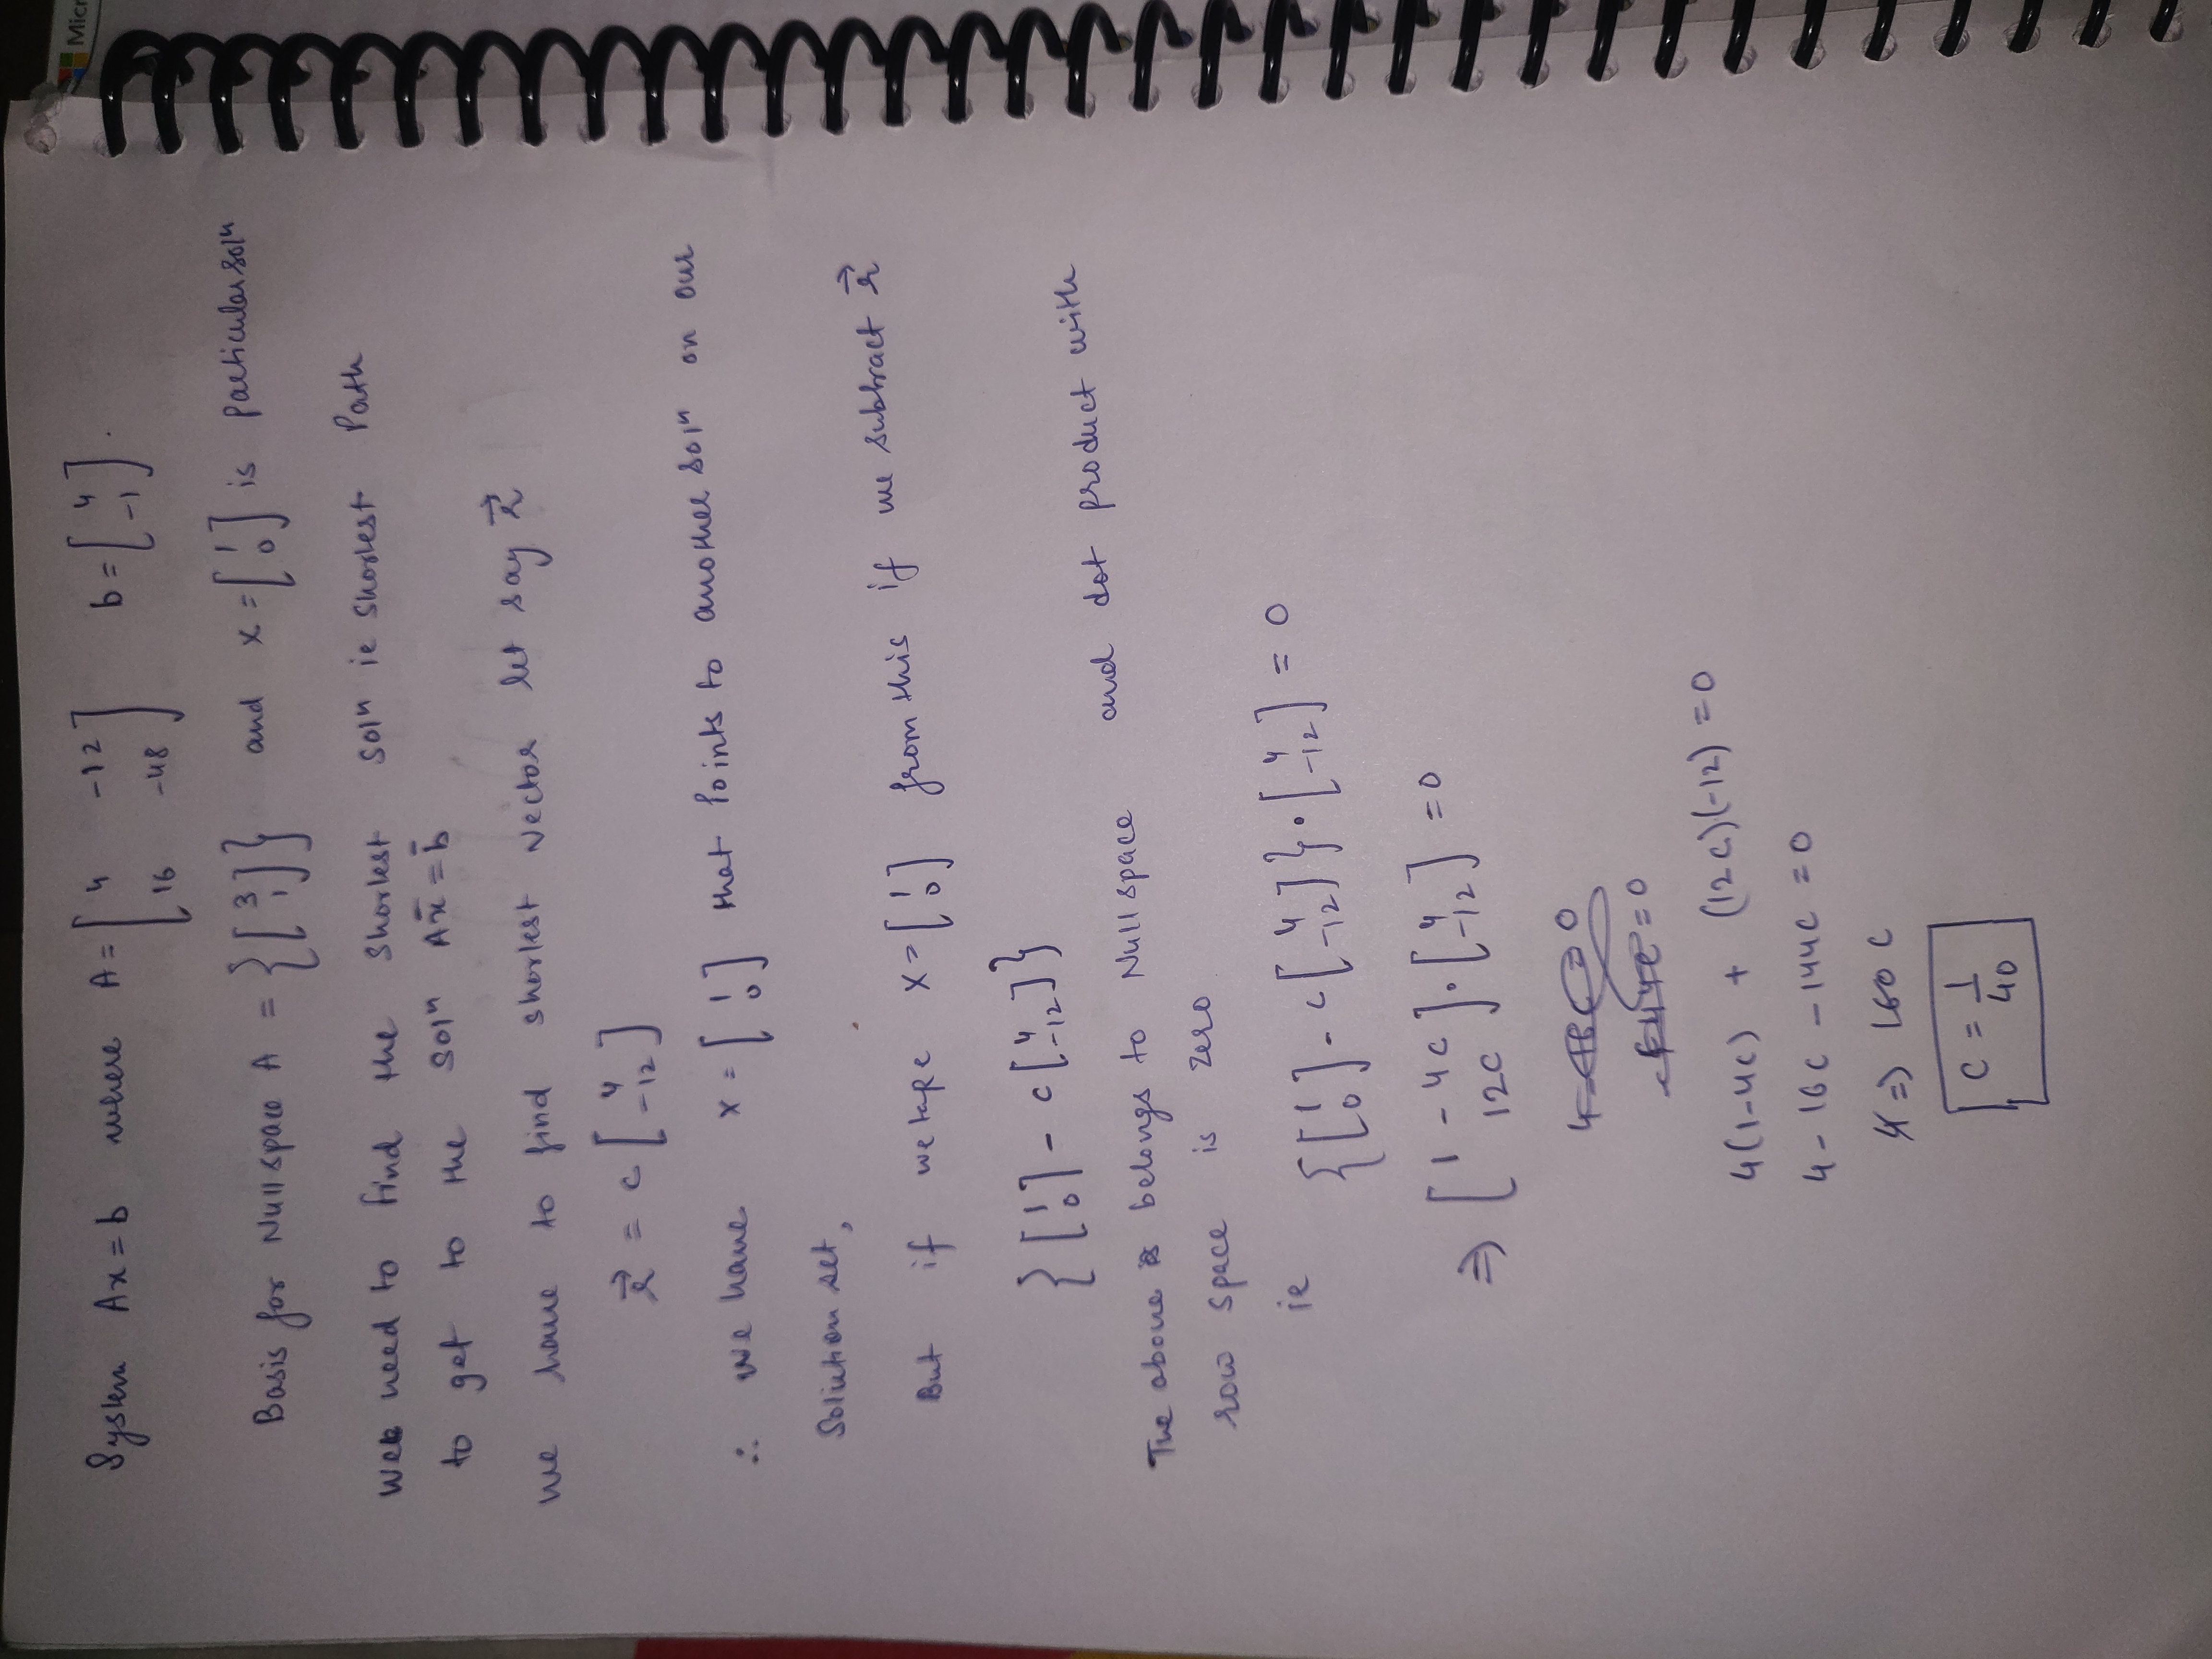 System Ax = b where A = [ 4 -12 ; 16 -48 ] b = [ 4 ; -1 ].
Basis for Null space A = { [ 3 ; 1 ] } and x = [ 1 ; 0 ] is particular solⁿ
we need to find the shortest solⁿ ie shortest Path
to get to the solⁿ Ax̄ = b̄
we have to find shortest vector let say r⃗
r⃗ = c [ 4 ; -12 ]
∴ we have x = [ 1 ; 0 ] that Points to another solⁿ on our
Solution set,
But if we take x = [ 1 ; 0 ] from this if we subtract r⃗
{ [ 1 ; 0 ] - c [ 4 ; -12 ] }
The above belongs to Null space and dot product with
row space is zero
ie { [ 1 ; 0 ] - c [ 4 ; -12 ] } · [ 4 ; -12 ] = 0
⇒ [ 1 - 4c ; 12c ] · [ 4 ; -12 ] = 0
= 0
= 0
4(1-4c) + (12c)(-12) = 0
4 - 16c - 144c = 0
4 ⇒ 160c
c = 1/40
Micr